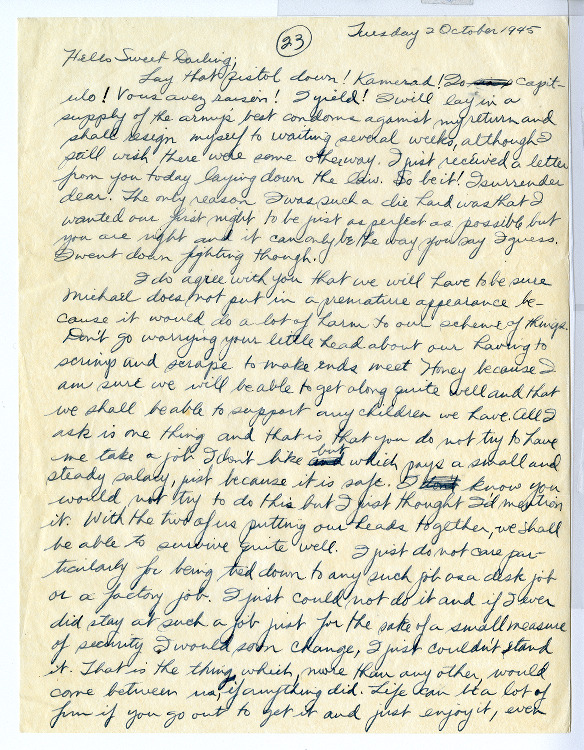 23
Tuesday 2 October 1945
Hello Sweet Darling,
Lay that pistol down! Kamerad! Io capit-
ulo! Vous avez raison! I yield! I will lay in a
supply of the armys best condoms against my return and
shall resign myself to waiting several weeks, although I
still wish there were some other way. I just received a letter
from you today laying down the law. So be it! I surrender
dear. The only reason I was such a die hard was that I
wanted our first night to be just as perfect as possible, but
you are right and it can only be the way you say I guess.
I went down fighting though.
I do agree with you that we will have to be sure
Michael does not put in a premature appearance be-
cause it would do a lot of harm to our scheme of things.
Don't go worrying your little head about our having to
scrimp and scrape to make ends meet Honey because I
am sure we will be able to get along quite well and that
we shall be able to support any children we have. All I
ask is one thing and that is, that you do not try to have
me take a job I don't like but which pays a small and
steady salary, just because it is safe. I know you
would not try to do this but I just thought I'd mention
it. With the two of us putting our heads together, we shall
be able to survive quite well. I just do not care par-
ticularly for being tied down to any such job as a desk job
or a factory job. I just could not do it and if I ever
did stay at such a job just for the sake of a small measure
of security I would soon change, I just couldn't stand
it. That is the thing which, more than any other, would
come between us, if anything did. Life can be a lot of
fun if you go out to get it and just enjoy it, even